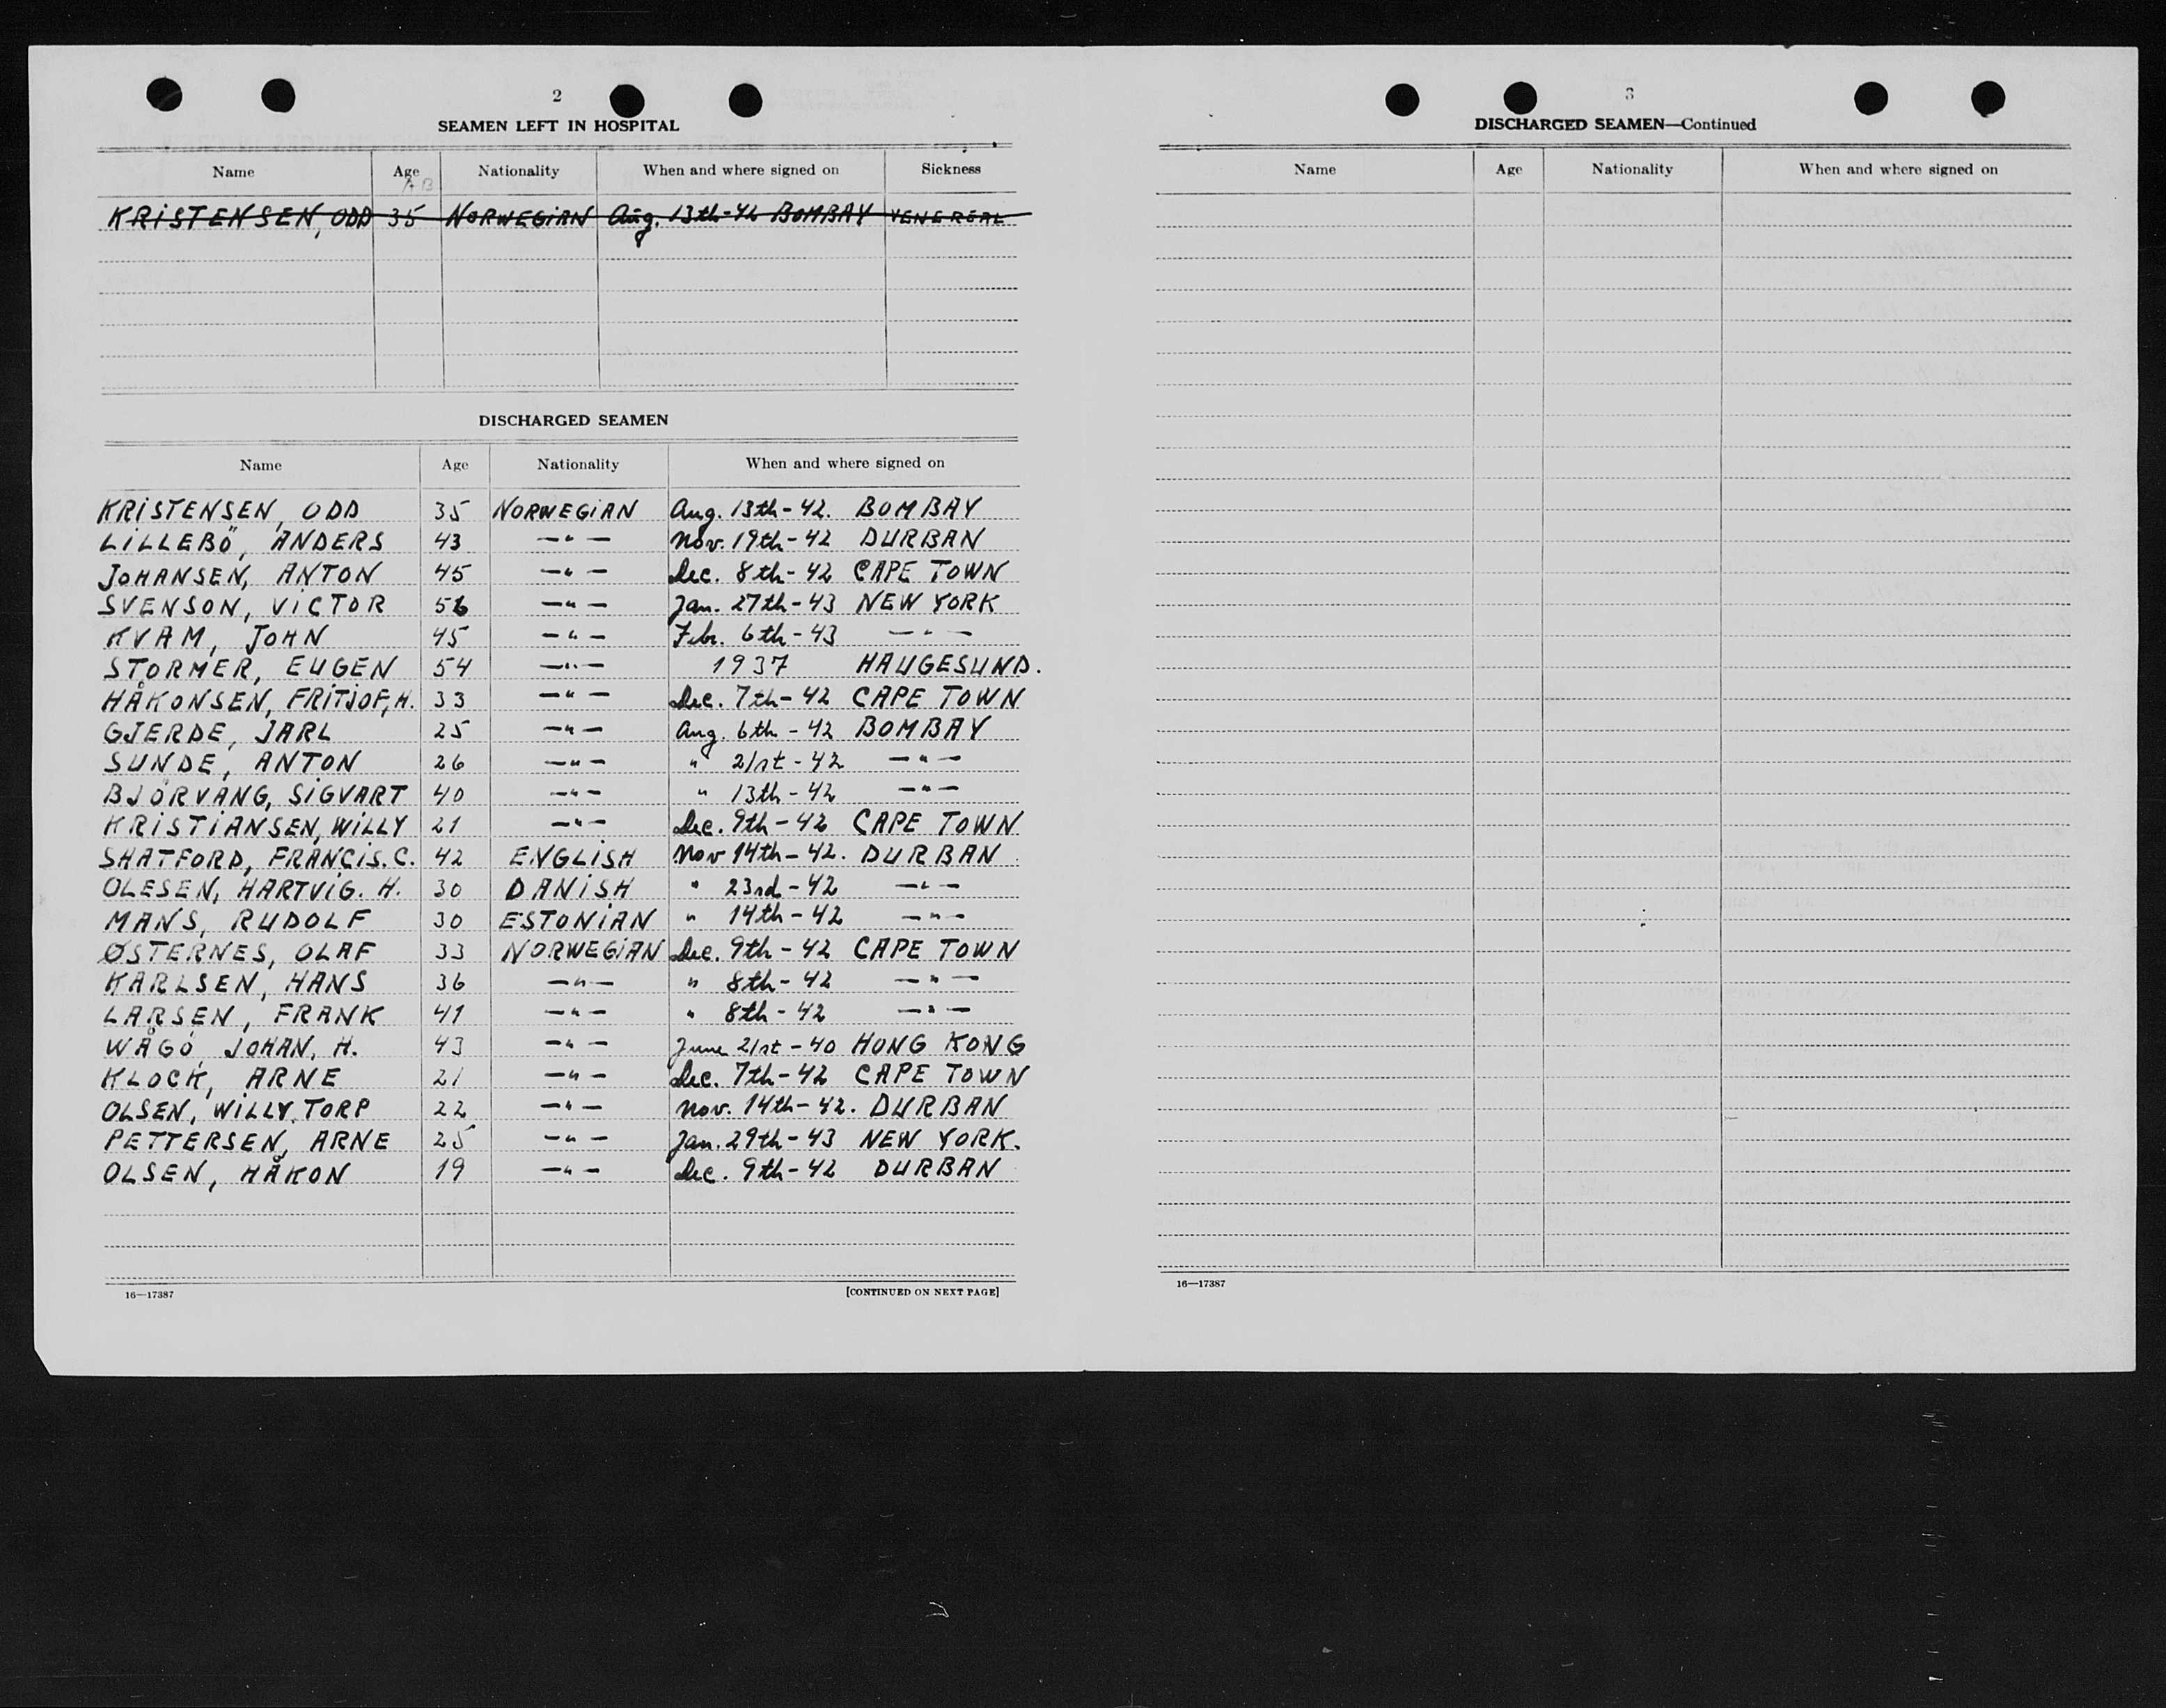 2
SEAMEN LEFT IN HOSPITAL
Name Age Nationality When and where signed on Sickness
KRISTENSEN, ODD 35 NORWEGIAN Aug. 13th-42 BOMBAY VENEREAL
DISCHARGED SEAMEN
Name Age Nationality When and where signed on
KRISTENSEN, ODD 35 NORWEGIAN Aug. 13th-42. BOMBAY
LILLEBÖ, ANDERS 43 —"— Nov. 19th-42 DURBAN
JOHANSEN, ANTON 45 —"— Dec. 8th-42 CAPE TOWN
SVENSON, VICTOR 56 —"— Jan. 27th-43 NEW YORK
KVAM, JOHN 45 —"— Febr. 6th-43 —"—
STORMER, EUGEN 54 —"— 1937 HAUGESUND.
HÅKONSEN, FRITJOF, H. 33 —"— Dec. 7th-42 CAPE TOWN
GJERDE, JARL 25 —"— Aug. 6th-42 BOMBAY
SUNDE, ANTON 26 —"— " 21st-42 —"—
BJÖRVANG, SIGVART 40 —"— " 13th-42 —"—
KRISTIANSEN, WILLY 21 —"— Dec. 9th-42 CAPE TOWN
SHATFORD, FRANCIS. C. 42 ENGLISH Nov 14th-42. DURBAN
OLESEN, HARTVIG. H. 30 DANISH " 23rd-42 —"—
MANS, RUDOLF 30 ESTONIAN " 14th-42 —"—
ØSTERNES, OLAF 33 NORWEGIAN Dec. 9th-42 CAPE TOWN
KARLSEN, HANS 36 —"— " 8th-42 —"—
LARSEN, FRANK 41 —"— " 8th-42 —"—
WÅGÖ, JOHAN, H. 43 —"— June 21st-40 HONG KONG
KLOCK, ARNE 21 —"— Dec. 7th-42 CAPE TOWN
OLSEN, WILLY. TORP 22 —"— Nov. 14th-42. DURBAN
PETTERSEN, ARNE 25 —"— Jan. 29th-43 NEW YORK.
OLSEN, HÅKON 19 —"— Dec. 9th-42 DURBAN
16—17387 [CONTINUED ON NEXT PAGE]
3
DISCHARGED SEAMEN—Continued
Name Age Nationality When and where signed on
16—17387